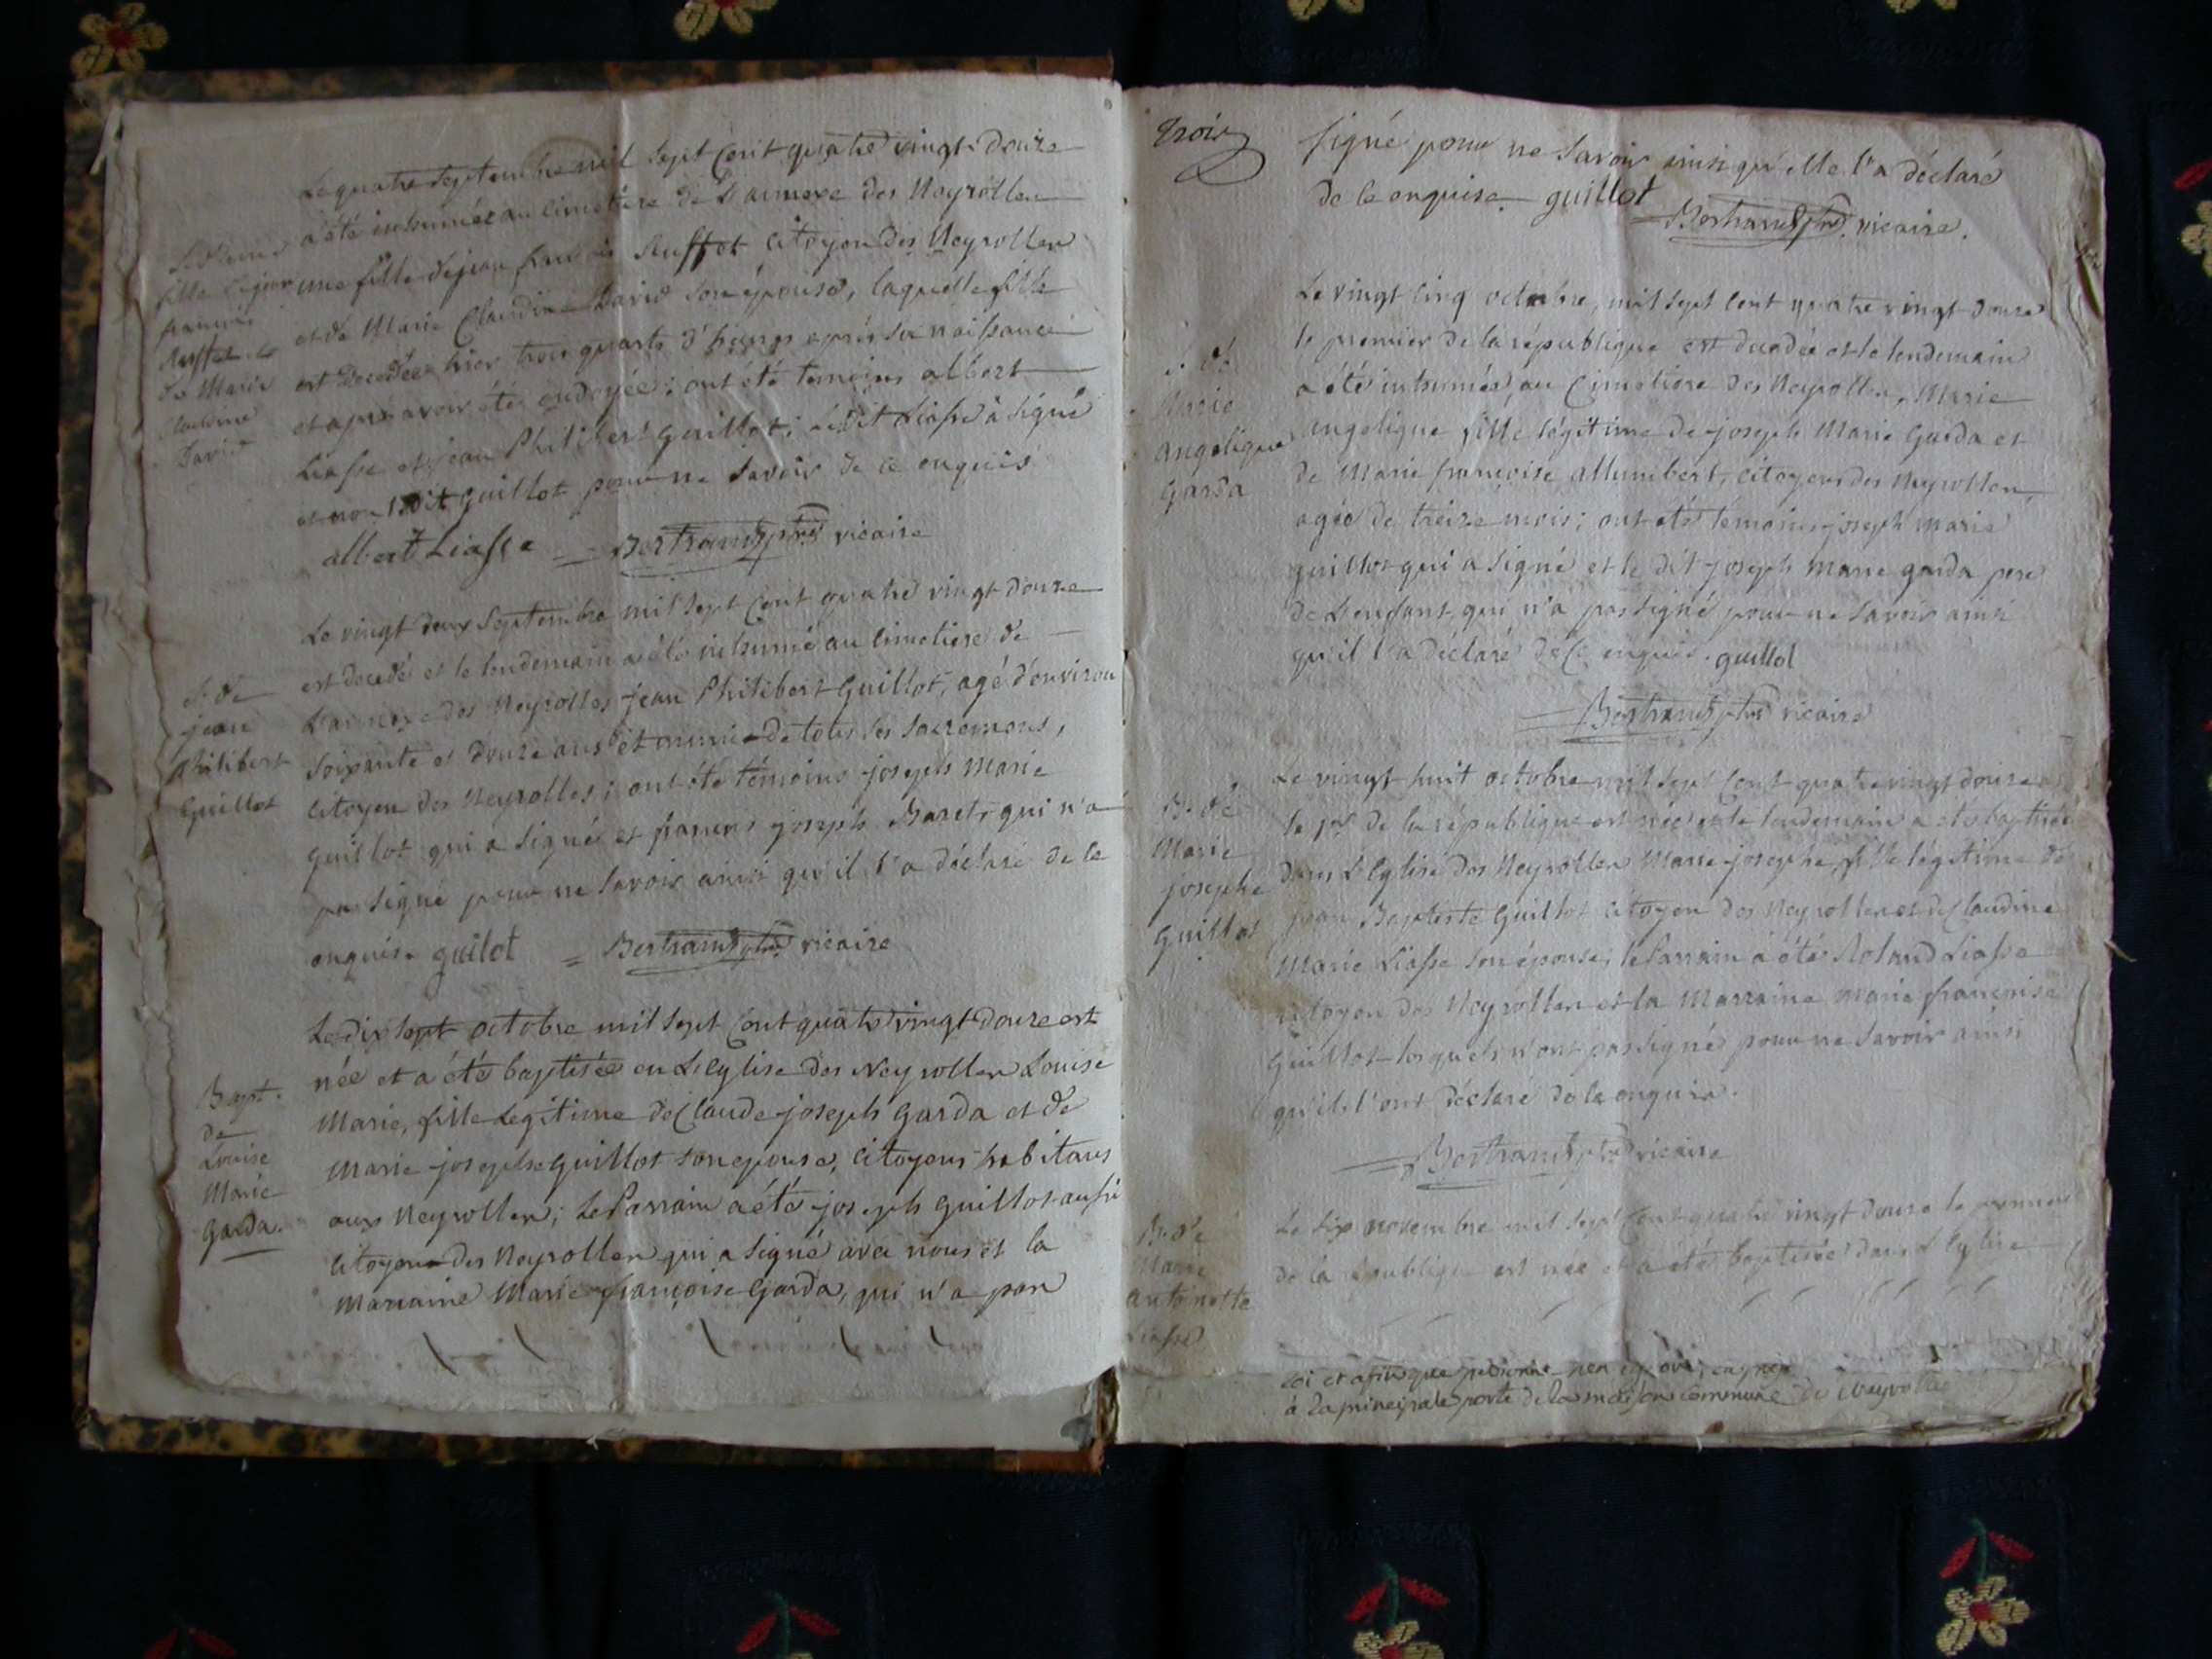 Le quatre septembre mil sept cent quatre vingt douze
a été inhumée au cimetiére de L'annexe des Neyrolles
une fille de jean françois Ruffet citoyen des Neyrolles
et de Marie Claudine David son épouse, laquelle fille
est decedée hier trois quarts d'heure aprés sa naissance
et aprés avoir été ondoyée; ont été temoins albert
Liasse et jean Philibert Guillot; ledit Liasse a signé
et non ledit Guillot pour ne savoir de ce enquis
albert Liasse = Bertrand ptre vicaire
fille de jean
françois
Ruffet et
de Marie
Claudine
David
Le vingt deux Septembre mil sept cent quatre vingt douze
est decedé et le lendemain a été inhumé au cimetiere de
L'annexe des Neyrolles jean Philibert Guillot, agé d'environ
soixante et douze ans et muni de tous les sacremens,
citoyen des Neyrolles; ont été témoins joseph Marie
guillot qui a signé et francois joseph Baret qui n'a
pas signé pour ne savoir ainsi qu'il l'a déclaré de ce
enquis. guilot = Bertrand ptre vicaire
S. de
jean
Philibert
Guillot
Le dix sept octobre mil sept cent quatre vingt douze est
née et a été baptisée en L'Eglise des Neyrolles Louise
Marie, fille legitime de Claude joseph Garda et de
Marie josephe Guillot son epouse, citoyens habitans
aux Neyrolles; Le Parrain a été joseph Guillot aussi
citoyen des Neyrolles qui a signé avec nous et la
Marraine Marie françoise Garda, qui n'a pas
Bapt.
de
Louise
Marie
Garda.
Trois
signé pour ne savoir ainsi qu'elle l'a déclaré
de ce enquise. guillot
Bertrand ptre. vicaire.
Le vingt cinq octobre, mil sept cent quatre vingt douze
le premier de la république est decedée et le lendemain
a été inhumée au Cimetiere des Neyrolles, Marie
angelique fille légitime de joseph Marie Garda et
de Marie françoise allumbert, citoyens des Neyrolles
agée de treize mois; ont été témoins joseph marie
guillot qui a signé et le dit joseph marie garda pere
de L'enfant qui n'a pas signé pour ne savoir ainsi
qu'il l'a déclaré de ce enquis. guillot
Bertrand ptre vicaire
S. de
Marie
angelique
Garda
Le vingt huit octobre mil sept cent quatre vingt douze
le 1er de la république est née et le lendemain a été baptisée
dans L'Eglise des Neyrolles Marie josephe, fille légitime de
jean Baptiste Guillot citoyen des Neyrolles et de Claudine
Marie Liasse son épouse; le Parrain a été Roland Liasse
citoyen des Neyrolles et la Marraine marie françoise
Guillot lesquels n'ont pas signé pour ne savoir ainsi
qu'ils l'ont déclaré de ce enquis.
Bertrand ptre vicaire
B. de
Marie
josephe
Guillot
Le six novembre mil sept cent quatre vingt douze le premier
de la république est née et a été baptisée dans L'Eglise
B. de
Marie
antonette
Liasse
loi et afin que personne n'en ignore,
à la principale porte de la maison commune de Neyrolles